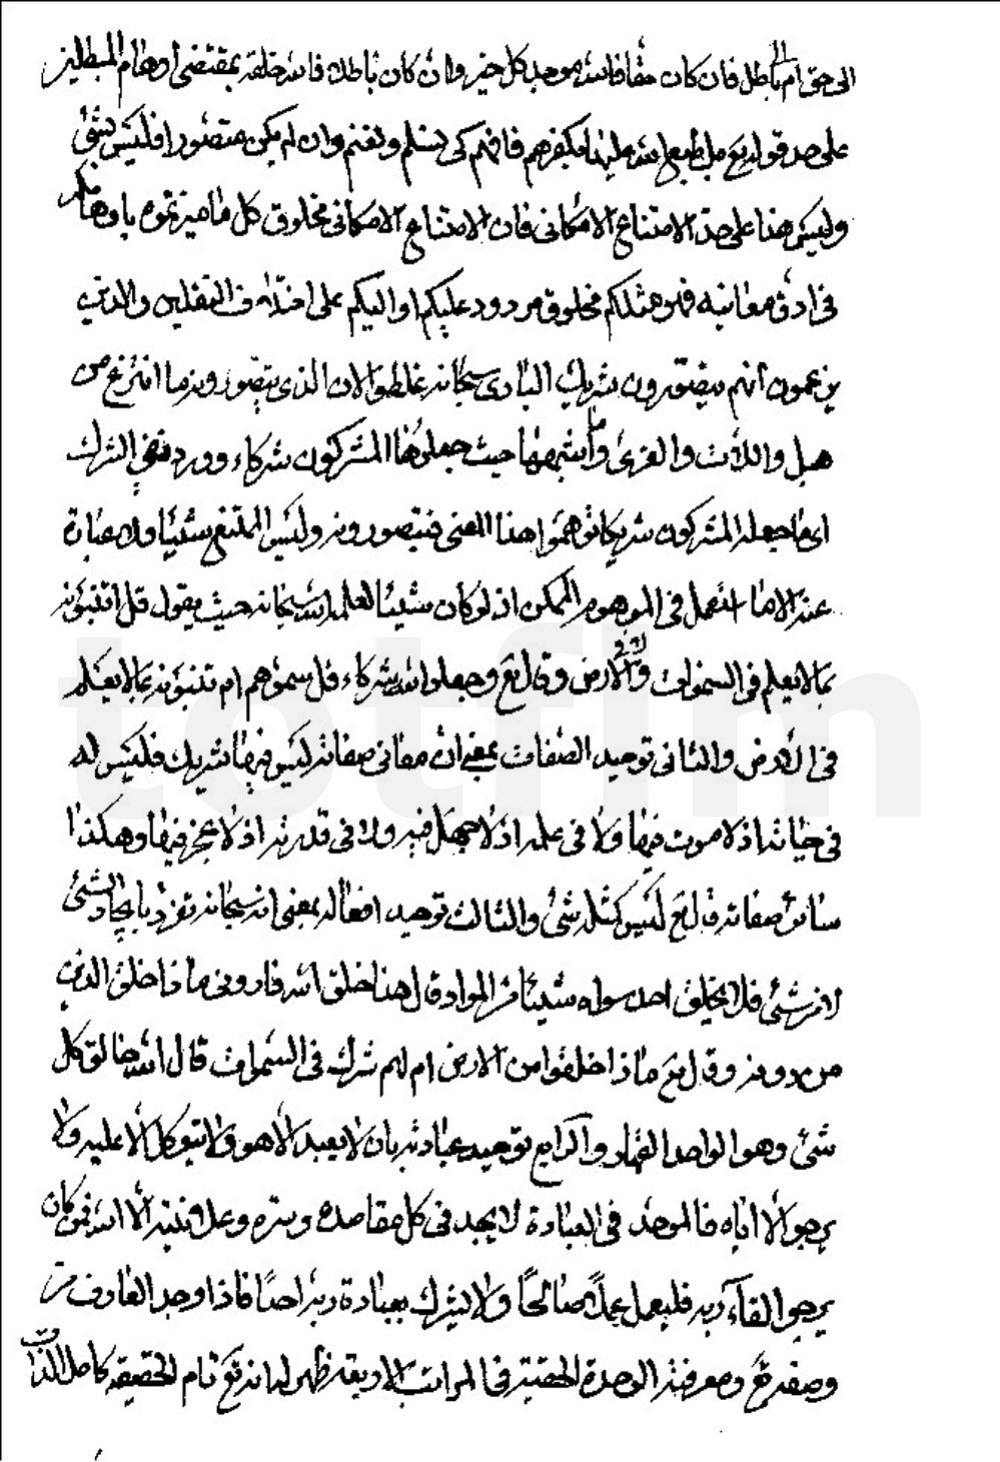 الى حق ام باطل فان كان حقا فالله موجد كل خير وان كان باطلا فالله خلقه بمقتضى اوهام المبطلين
على حد قوله تع بل طبع الله عليها بكفرهم فافهم كى تسلم وتغنم وان لم يكن متصورا فليس بشئ
وليس هذا على حد الامتناع الامكانى فان الامتناع الامكانى مخلوق كل ما ميزتموه باوهامكم
فى ادق معانيه فهو مثلكم مخلوق مردود عليكم او اليكم على اختلاف النقلين والذين
يزعمون انهم يتصورون شريك البارى سبحانه غلطوا لان الذى يتصورونه ما انتزع من
هبل واللات والعزى وما اشبهها حيث جعلوها المشركون شركاء وورد نفى الشرك
اى ما جعله المشركون شريكا توهموا هذا المعنى فيتصورونه وليس الممتنع شيئا ولا عبارة
عنه الا ما استعمل فى الموهوم الممكن اذ لو كان شيئا لعلمه الله سبحانه حيث يقول قل اتنبؤنه
بما لا يعلم فى السموات ولا فى الارض وقال تع وجعلوا لله شركاء قل سموهم ام تنبؤنه بما لا يعلم
فى الارض والثانى توحيد الصفات بمعنى ان معانى صفاته ليس فيها شريك فليس له
فى حياته اذ لا موت فيها ولا فى علمه اذ لا جهل فيه ولا فى قدرته اذ لا عجز فيها وهكذا
سائر صفاته قال تع ليس كمثله شئ والثالث توحيد افعاله بمعنى انه سبحانه تفرد بايجاد الشئ
لا من شئ فلا يخلق احد سواه شيئا من المواد قال هذا خلق الله فارونى ماذا خلق الذين
من دونه وقال تع ماذا خلقوا من الارض ام لهم شرك فى السموات قال الله خالق كل
شئ وهو الواحد القهار والرابع توحيد عبادته بان لا يعبد الا هو ولا يتوكل الا عليه ولا
يرجو الا اياه فالموحد فى العبادة لا يجد فى كل مقاصده وسره وعلانيته الا الله فمن كان
يرجو لقآء ربه فليعمل عملا صالحا ولا يشرك بعبادة ربه احدا فاذا وجد العارف من
وصفه تع ومعرفته الوحدة الحقية فى المراتب الاربعة ظهر له انه تع تام الحقيقة كامل الذات
totfim